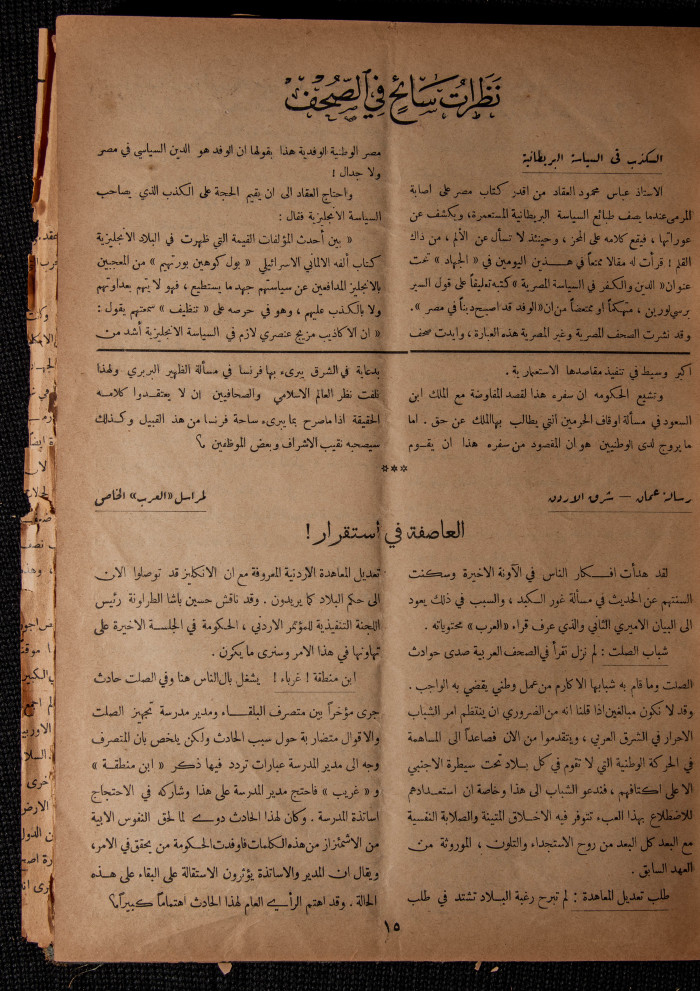 نظرات سائح في الصحف
الكذب فى السياسة البريطانية
الاستاذ عباس محمود العقاد من اقدر كتاب مصر على اصابة
المرمى عندما يصف طبائع السياسة البريطانية المستعمرة، ويكشف عن
عوراتها، فيقع كلامه على المحز، وحينئذ لا تسأل عن الألم، من ذاك
القلم! قرأت له مقالا ممتعاً في هـــذين اليومين في «الجهاد» تحت
عنوان «الدين والكفر في السياسة المصرية» كتبه تعليقاً على قول السير
برسي لورين، متهكماً او ممتعضاً من ان «الوفد قد اصبح ديناً في مصر».
وقد نشرت الصحف المصرية وغير المصرية هذه العبارة، وايدت صحف
مصر الوطنية الوفدية هذا بقولها ان الوفد هو الدين السياسي في مصر
ولا جدال!
واحتاج العقاد الى ان يقيم الحجة على الكذب الذي يصاحب
السياسة الانجليزية فقال:
« بين أحدث المؤلفات القيمة التي ظهرت في البلاد الانجليزية
كتاب ألفه الالماني الاسرائيلي « بول كوهين بورتهيم » من المعجبين
بالانجليز المدافعين عن سياستهم جهد ما يستطيع، فهو لا يتهم بعداوتهم
ولا بالكذب عليهم، وهو في حرصه على « تنظيف » سمعتهم يقول:
« ان الاكاذيب مزيج عنصري لازم في السياسة الانجليزية أشد من
اكبر وسيط في تنفيذ مقاصدها الاستعمارية.
وتشيع الحكومه ان سفره هذا لقصد المفاوضة مع الملك ابن
السعود في مسألة اوقاف الحرمين التي يطالب بها الملك عن حق. اما
ما يروج لدى الوطنيين هو ان المقصود من سفره هذا ان يقوم
بدعاية في الشرق يبرىء بها فرنسا في مسألة الظهير البربري ولهذا
نلفت نظر العالم الاسلامي والصحافيين ان لا يعتقدوا كلامه
الحقيقة اذا ما صرح بما يبرىء ساحة فرنسا من هذ القبيل وكذلك
سيصحبه نقيب الاشراف وبعض الموظفين ؟
***
رسالة عمان — شرق الاردن
لمراسل «العرب» الخاص
العاصفة في أستقرار!
لقد هدأت افـكار الناس في الآونة الاخيرة وسكنت
السنتهم عن الحديث في مسألة غور الكبد، والسبب في ذلك يعود
الى البيان الاميري الثاني والذي عرف قراء «العرب» محتوياته.
شباب الصلت: لم نزل نقرأ في الصحف العربية صدى حوادث
الصلت وما قام به شبابها الاكارم من عمل وطني يقضي به الواجب.
وقد لا نكون مبالغين اذا قلنا انه من الضروري ان ينتظم امر الشباب
الاحرار في الشرق العربي، ويتقدموا من الآن فصاعداً الى المساهمة
في الحركة الوطنية التي لا تقوم في كل بلاد تحت سيطرة الاجنبي
الا على اكتافهم، فندعو الشباب الى هذا وخاصة ان استعدادهم
للاضطلاع بهذا العبء تتوفر فيه الاخلاق المتينة والصلابة النفسية
مع البعد كل البعد من روح الاستجداء والتلون، الموروثة من
العهد السابق.
طلب تعديل المعاهدة: لم تبرح رغبة البلاد تشتد في طلب
تعديل المعاهدة الاردنية المعروفة مع ان الانكليز قد توصلوا الان
الى حكم البلاد كما يريدون. وقد ناقش حسين باشا الطراونة رئيس
اللجنة التنفيذية للمؤتمر الاردني، الحكومة في الجلسة الاخيرة على
تهاونها في هذا الامر وسنرى ما يكون.
ابن منطقة! غرباء! يشغل بال الناس هنا وفي الصلت حادث
جرى مؤخراً بين متصرف البلقاء ومدير مدرسة تجهيز الصلت
والاقوال متضاربة حول سبب الحادث ولكن يلخص بان المتصرف
وجه الى مدير المدرسة عبارات تردد فيها ذكر « ابن منطقة »
و « غريب » فاحتج مدير المدرسة على هذا وشاركه في الاحتجاج
اساتذة المدرسة. وكان لهذا الحادث دوي لما لحق النفوس الابية
من الاشمئزاز من هذه الكلمات فاوفدت الحكومة من يحقق في الامر،
ويقال ان المدير والاساتذة يؤثرون الاستقالة على البقاء على هـــذه
الحالة. وقد اهتم الرأي العام لهذا الحادث اهتماماً كبيراً؟
١٥